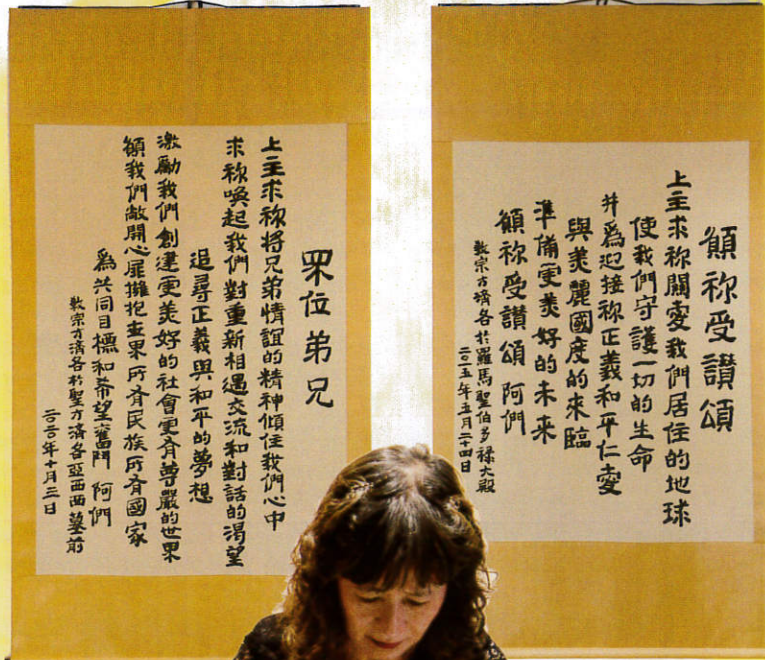 願祢受讚頌
上主求祢關愛我們居住的地球
使我們守護一切的生命
并爲迎接祢正義和平仁愛
與美麗國度的來臨
準備更美好的未來
願祢受讚頌 阿們
教宗方濟各於羅馬聖伯多祿大殿
二〇一五年五月二十四日
眾位弟兄
上主求祢將兄弟情誼的精神傾注我們心中
求祢喚起我們對重新相遇交流和對話的渴望
追尋正義與和平的夢想
激勵我們創建更美好的社會更有尊嚴的世界
願我們敞開心扉擁抱世界所有民族所有國家
爲共同目標和希望奮鬥 阿們
教宗方濟各於聖方濟各亞西西墓前
二〇二〇年十月三日